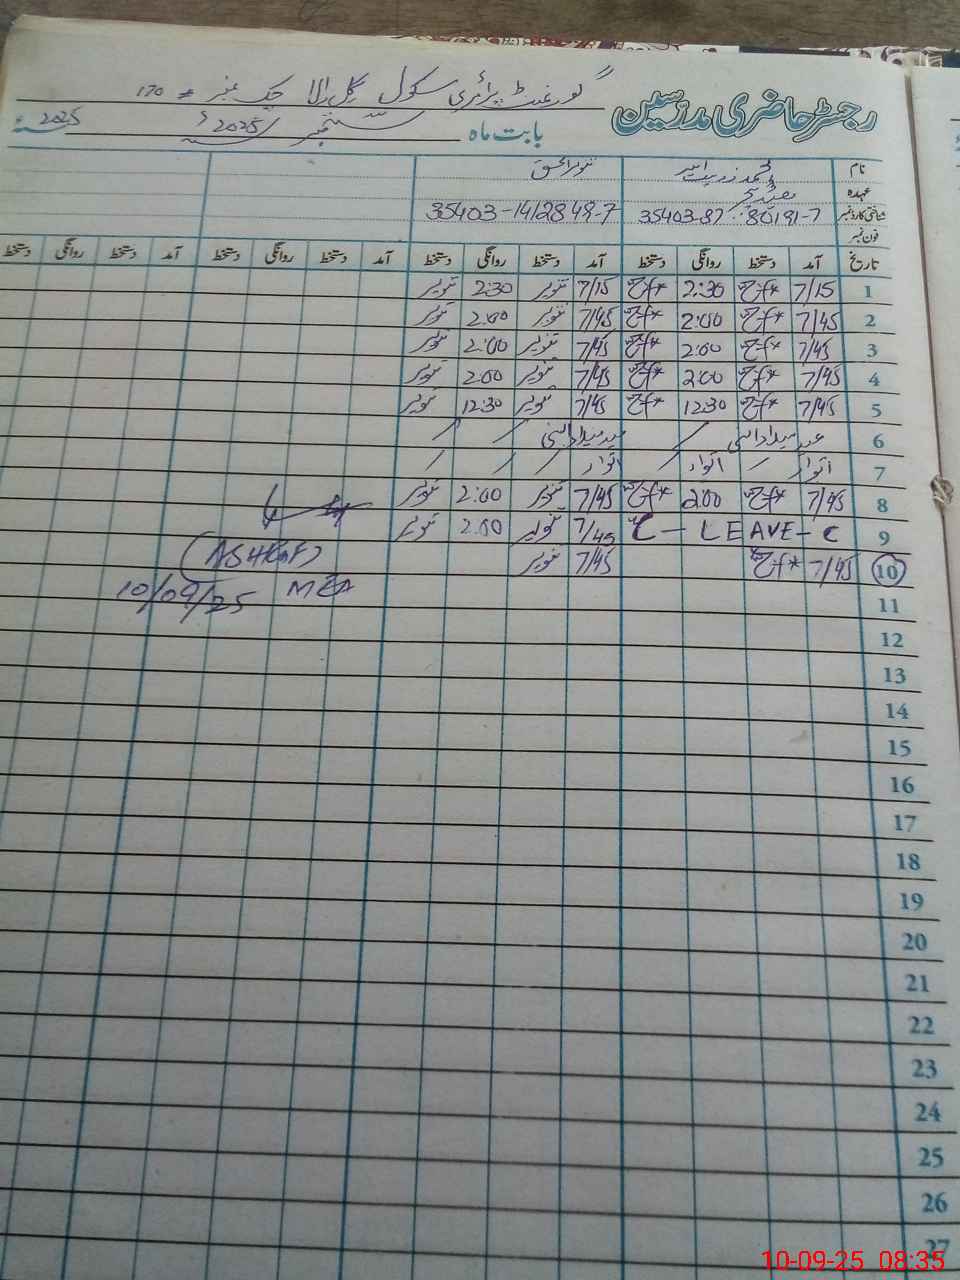 رجسٹر حاضری مدرسین گورنمنٹ پرائمری سکول گل والا چک نمبر 170
بابت ماہ ستمبر 2025ء سنہ 2025ء
نام محمد تنویر الحق
عہدہ
شناختی کارڈ نمبر 35403-87 80191-7 35403-1412848-7
فون نمبر
تاریخ آمد دستخط روانگی دستخط آمد دستخط روانگی دستخط آمد دستخط روانگی دستخط آمد دستخط روانگی دستخط
1 7/15 2:30 7/15 تنویر 2:30 تنویر
2 7/45 2:00 7/45 تنویر 2:00 تنویر
3 7/45 2:00 7/45 تنویر 2:00 تنویر
4 7/45 2:00 7/45 تنویر 2:00 تنویر
5 7/45 12:30 7/45 تنویر 12:30 تنویر
6 عید میلاد النبی / عید میلاد النبی / /
7 اتوار / اتوار اتوار / / /
8 7/45 2:00 7/45 تنویر 2:00 تنویر
9 C - LEAVE - C 7/45 تنویر 2:00 تنویر
10 7/45 7/45 تنویر
(ASHRAF)
MEA
10/09/25
11
12
13
14
15
16
17
18
19
20
21
22
23
24
25
26
27
10-09-25 08:35